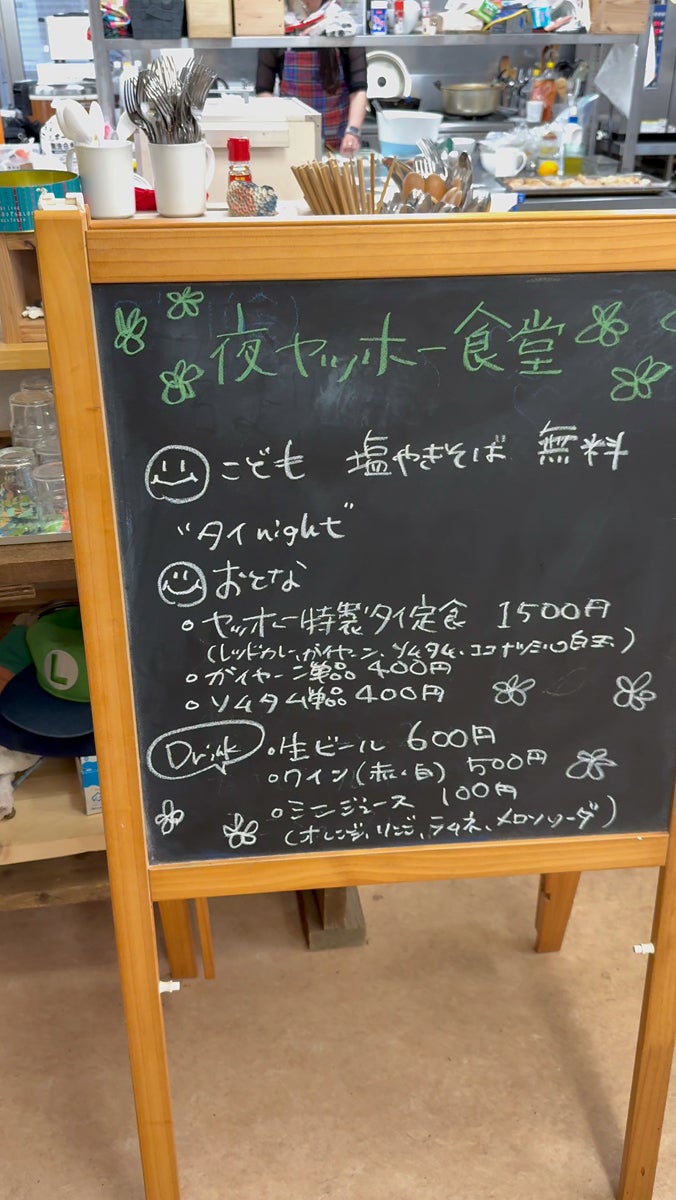 夜ヤッホー食堂
こども 塩やきそば 無料
"タイnight"
おとな
・ヤッホー特製タイ定食 1500円
(レッドカレー、ガイヤーン、ソムタム、ココナッツミルク白玉)
・ガイヤーン単品 400円
・ソムタム単品 400円
Drink ・生ビール 600円
・ワイン(赤・白) 500円
・ミニジュース 100円
(オレンジ、リンゴ、ラムネ、メロンソーダ)
L